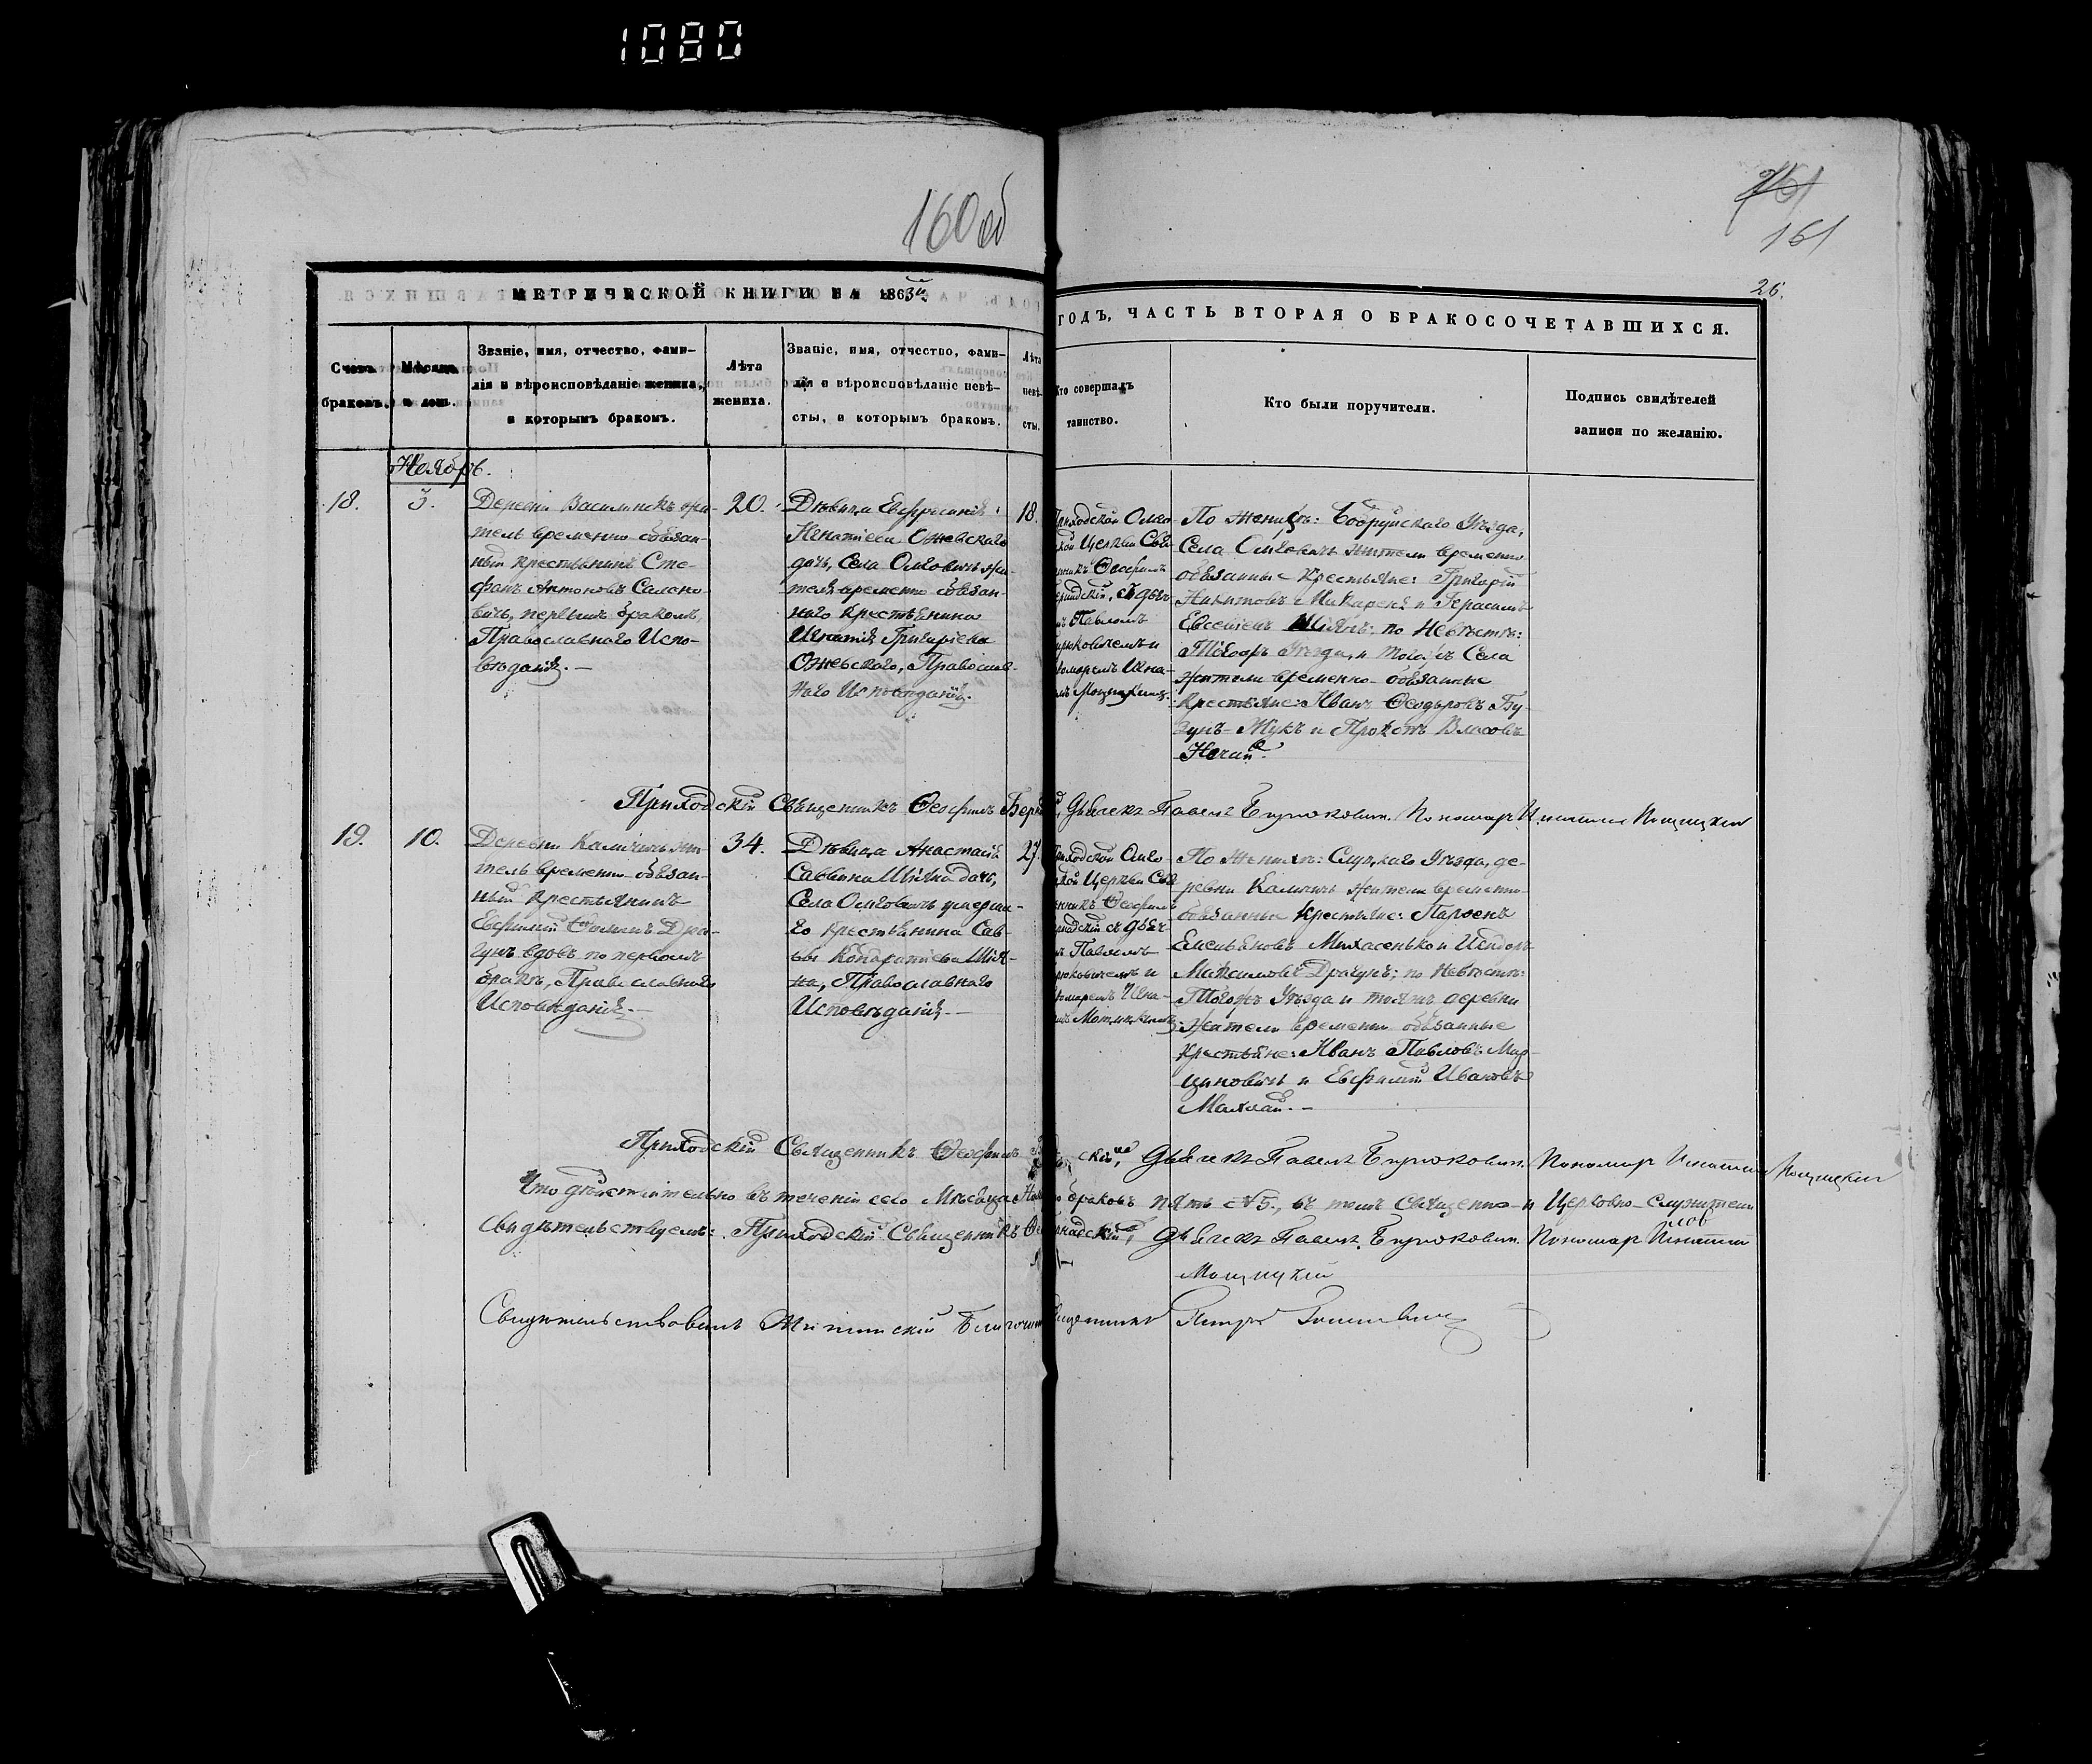 1080
160 об
161
161
26.
МЕТРИЧЕСКОЙ КНИГИ НА 1863й
ГОДЪ, ЧАСТЬ ВТОРАЯ О БРАКОСОЧЕТАВШИХСЯ.
Счетъ
браковъ.
Мѣсяцъ
и день.
Званіе, имя, отчество, фами-
лія и вѣроисповѣданіе жениха,
и которымъ бракомъ.
Лѣта
жениха.
Званіе, имя, отчество, фами-
лія и вѣроисповѣданіе невѣ-
сты, и которымъ бракомъ.
Лѣта
невѣ-
сты.
Кто совершалъ
таинство.
Кто были поручители.
Подпись свидѣтелей
записи по желанію.
Ноябрь.
18.
3.
Деревни Василинкъ жи-
тель временно-обязан-
ный крестьянинъ Сте-
фанъ Антоновъ
вичъ, первымъ бракомъ,
Православнаго Испо-
вѣданія.—
20.
Дѣвица Евфросинія
Игнатіева Ожевского
дочь, Села Омговичъ жи-
теля временно обязан-
наго Крестьянина
Игнатія Григоріева
Ожевского, Православ-
наго Исповѣданія.
18.
Приходской Омго-
ской Церкви Свя-
нникъ Ѳеофилъ
ернадскій, съ дьяч-
мъ Павломъ
ирюковичемъ и
номаремъ Игна-
мъ Мощицкимъ
По Женихѣ: Бобруйскаго Уѣзда,
Села Омговичъ жители временно
обязанные Крестьяне: Григорій
Никитовъ Макареня и Герасимъ
Евсеіевъ Шіянъ; по Невѣстѣ:
Тогожъ Уѣзда, и тогожъ Села
жители временно-обязанные
Крестьяне: Иванъ Ѳеодоровъ Бу-
зунъ-Жукъ и Прокопъ Власовъ
Нечай.
Приходскій Священникъ Ѳеофилъ Дьячекъ Павелъ Бирюковичъ. Пономар Игнатій Мощицкій
19.
10.
Деревни Каличичъ жи-
тель временно-обязан-
ный Крестьянинъ
Евфимій Ѳоминъ Дра-
гунъ вдовъ по первомъ
бракѣ, Православнаго
Исповѣданія.—
34.
Дѣвица Анастасія
Саввина Шіяна дочь,
Села Омговичъ умерша-
го Крестьянина Сав-
вы Кондратіева Шія-
на, Православнаго
Исповѣданія.—
27.
Приходской Омго-
ской Церкви Свя-
нникъ Ѳеофилъ
рнадскій съ дьяч-
мъ Павломъ
рюковичемъ и
номаремъ Игна-
мъ Мощицкимъ
По Женихѣ: Слуцкаго Уѣзда, де-
ревни Каличичъ жители временно-
обязанные Крестьяне: Парѳенъ
Емельяновъ Михасенько и Исидоръ
Максимовъ Драгунъ; по Невѣстѣ:
Тогожъ Уѣзда и тояжъ деревни
жители временно обязанные
Крестьяне: Иванъ Павловъ Мар-
циновичъ и Евфимій Ивановъ
Махлай.—
Приходскій Священникъ Ѳеофилъ скій, Дьячекъ Павелъ Бирюковичъ. Пономар Игнатій Мощицкій
Что дѣйствительно въ теченіи сего Мѣсяца браковъ пять №5., въ томъ Священно- и Церковно-Служители
Свидѣтельствуемъ: Приходскій Священникъ рнадскій, Дьячекъ Павелъ Бирюковичъ. Пономар Игнатій
Мощицкій
Свидѣтельствовалъ Петръ